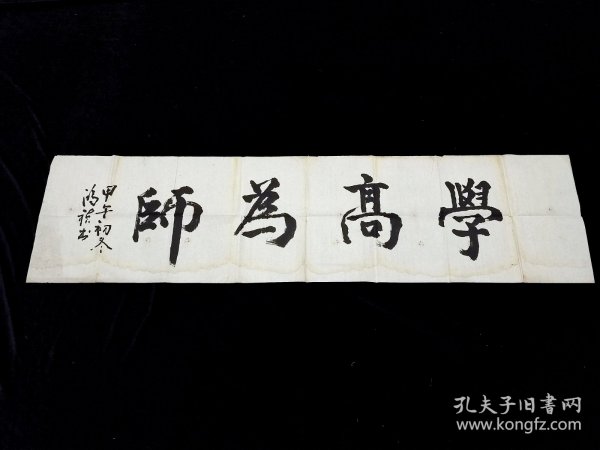 學高為師
甲午初冬
孔夫子旧書网
www.kongfz.com